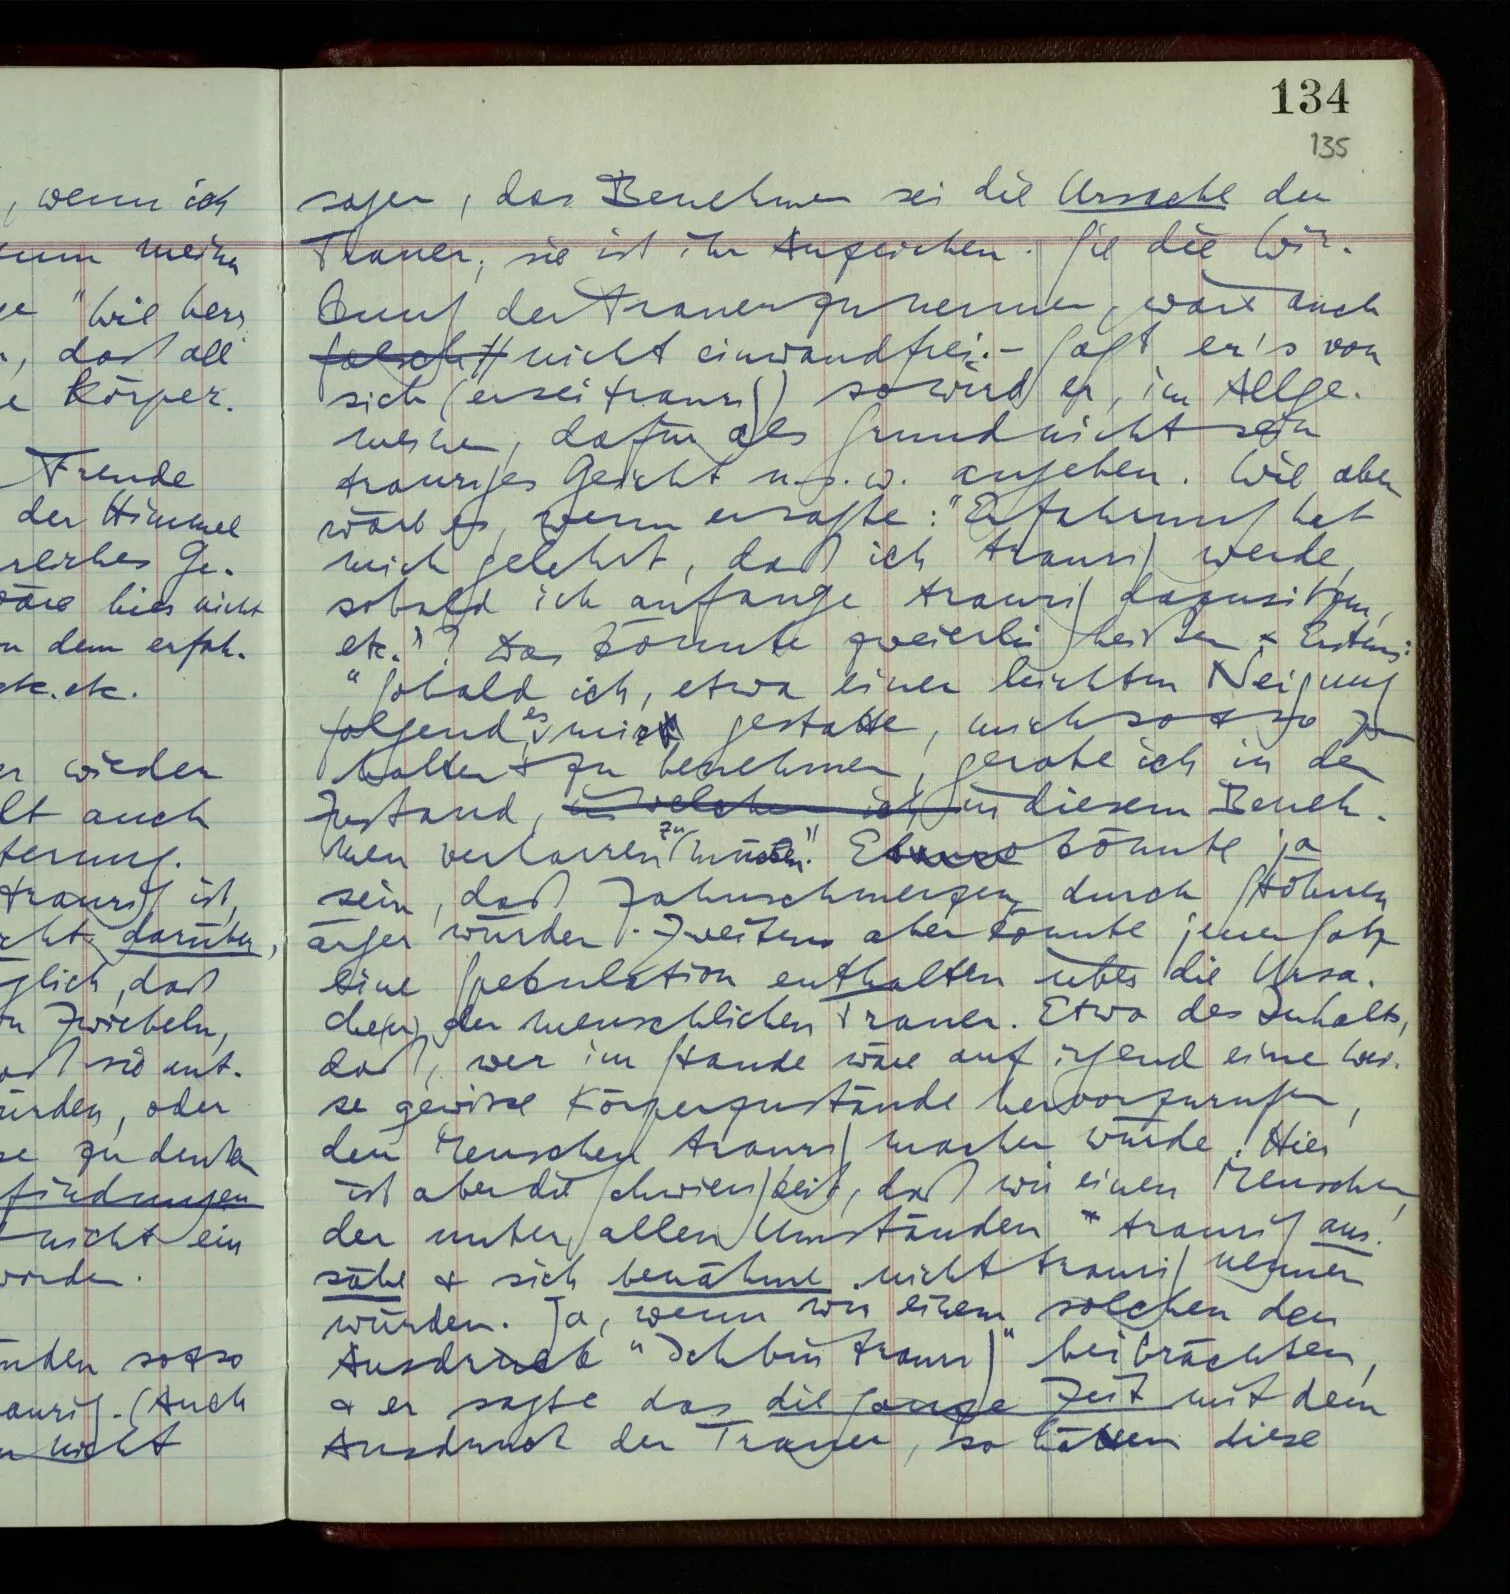 134
135
, wenn ich
um meine
"Wie herr
, daß all
e Körper.
Freude
der Himmel
rliches Ge-
wäre hier nicht
n dem erfah-
etc. etc.
er wieder
lt auch
terung.
traurig ist,
cht darüber,
glich, daß
on Zwiebeln,
oß sie ent-
ürden, oder
se zu denken
findungen
nicht ein
worden.
nden so & so
aurig. (Auch
nicht
sagen, das Benehmen sei die Ursache der
Trauer; sie ist ihr Anzeichen. Sie die Wir-
kung der Trauer zu nennen, wäre auch
falsch nicht einwandfrei. – Sagt er's von
sich (er sei traurig) so wird er, im Allge-
meinen, dafür als Grund nicht sein
trauriges Gesicht u.s.w. angeben. Wie aber
wäre es, wenn er sagte: "Erfahrung hat
mich gelehrt, daß ich traurig werde,
sobald ich anfange traurig dazusitzen,
etc."? Das könnte zweierlei heißen. Erstens:
"Sobald ich, etwa einer leichten Neigung
folgend, es mir gestatte, mich so & so zu
halten & zu benehmen, gerate ich in den
Zustand, in welchem ich in diesem Beneh-
men verharren zu müssen." Es könnte ja
sein, daß Zahnschmerzen durch Stöhnen
ärger würden. Zweitens aber könnte jener Satz
eine Spekulation enthalten über die Ursa-
che(n) der menschlichen Trauer. Etwa des Inhalts,
daß, wer im Stande wäre auf irgend eine Wei-
se gewisse Körperzustände hervorzurufen,
den Menschen traurig machen würde. Hier
ist aber die Schwierigkeit, daß wir einen Menschen,
der unter allen Umständen traurig aus-
sähe & sich benähme nicht traurig nennen
würden. Ja, wenn wir einem solchen den
Ausdruck "Ich bin traurig" beibrächten,
& er sagte das die ganze Zeit mit dem
Ausdruck der Trauer, so hätten diese